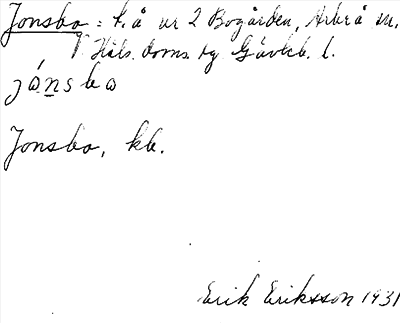 Jonsbo : t. å nr 2 Bogården, Arbrå sn,
V. Häls. doms. Gävleb. l.
jónsbo
Jonsbo, kb.
Erik Eriksson 1931